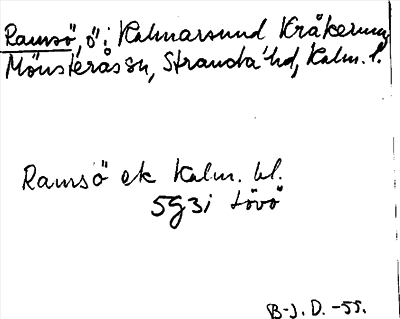 Ramsö, ö i Kalmarsund Kråkerum,
Mönsterås sn, Stranda hd, Kalm. l.
Ramsö ek Kalm. bl.
5g3i Lövö
B-J. D. -55.